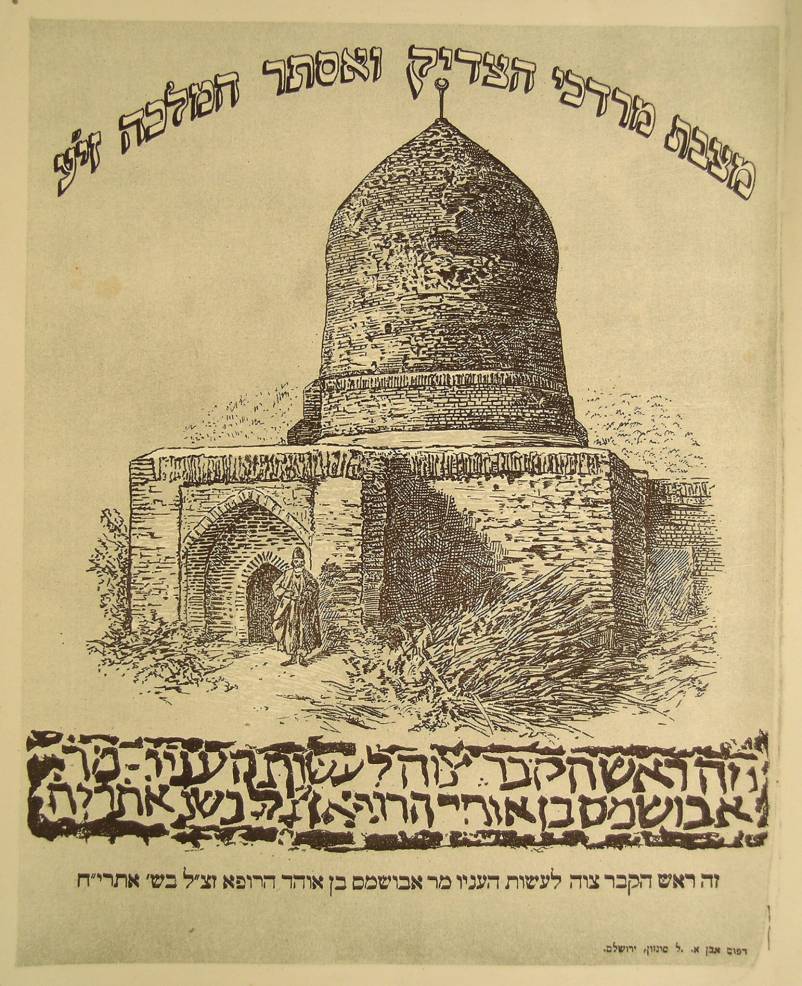 מצבת מרדכי הצדיק ואסתר המלכה זי״ע
זה ראש הקבר צוה לעשות העניו מר
אבושמס בן אוהד הרופא זצ״ל בש׳ אתרי״ח
זה ראש הקבר צוה לעשות העניו מר אבושמס בן אוהד הרופא זצ״ל בש׳ אתרי״ח
דפוס אבן א. ל. מונזון, ירושלם.